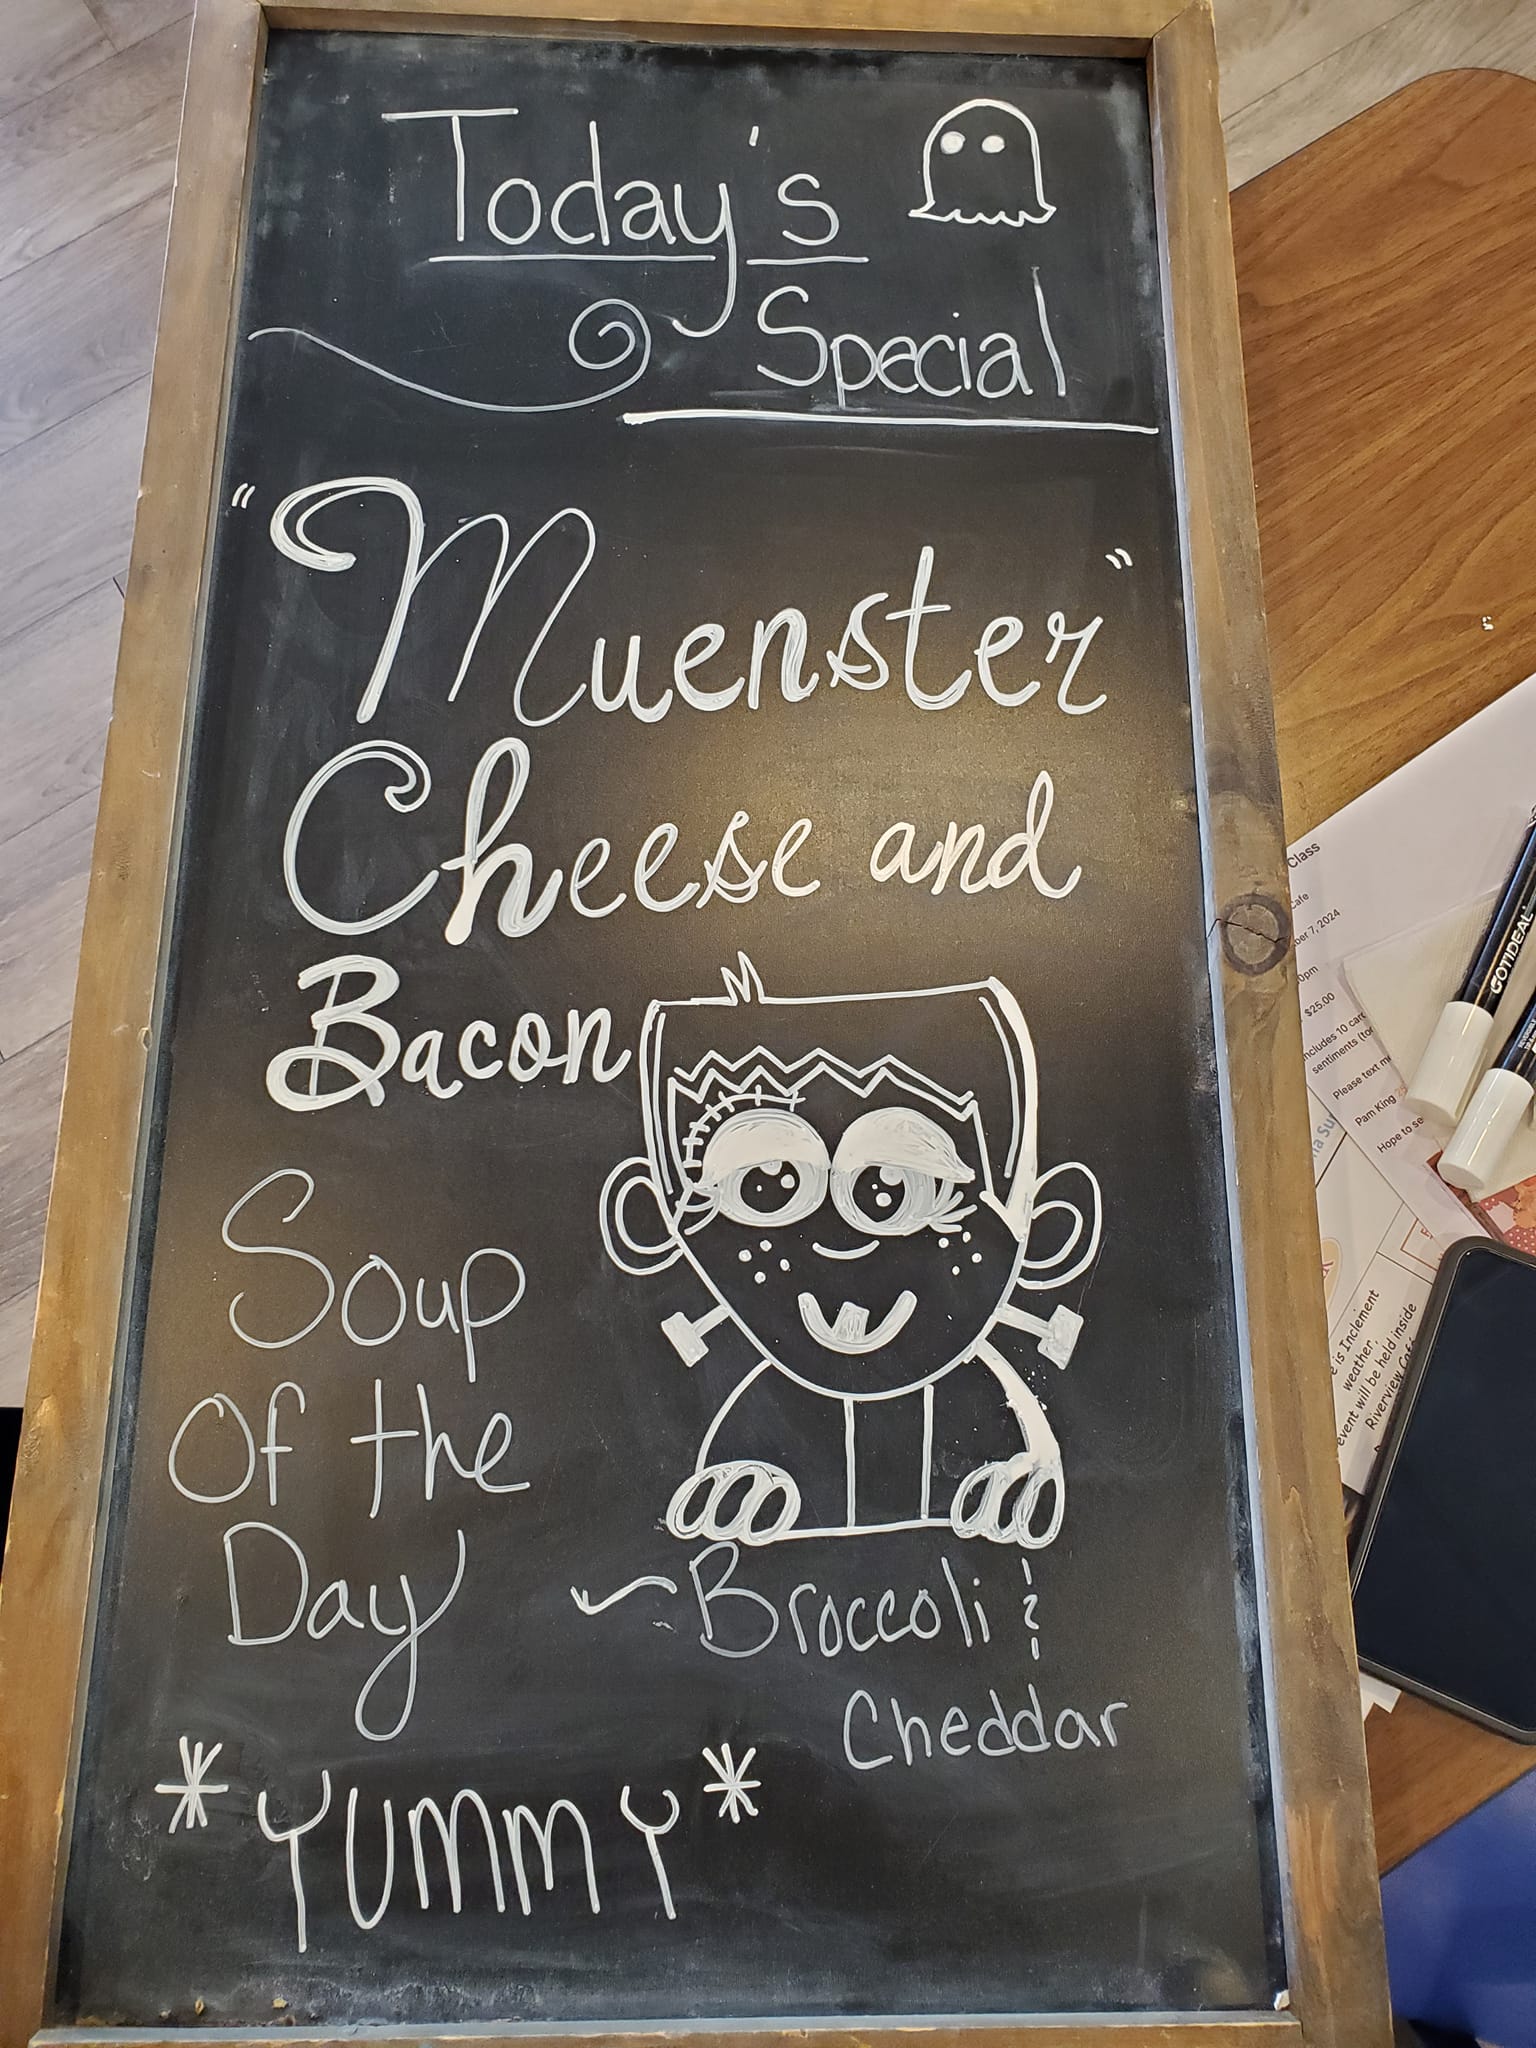 Today's
Special
"Muenster"
Cheese and
Bacon
Soup
Of the
Day
Broccoli &
Cheddar
*YUMMY*
Class
Cafe
ber 7, 2024
0pm
$25.00
ncludes 10 card
sentiments (too
Please text m
Pam King
Hope to se
GOTIDEAL
e is Inclement
weather,
event will be held inside
Riverview Café